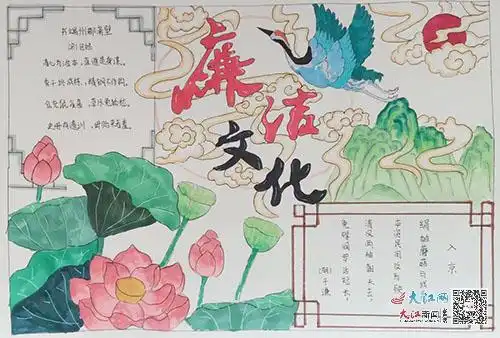 书端州郡斋壁
清心为治本，直道是身谋。
秀干终成栋，精钢不作钩。
仓充鼠雀喜，草尽兔狐愁。
史册有遗训，毋贻来者羞。
廉洁
文化
入京
绢帕蘑菇与线
本资民用反为殃
清风两袖朝天去
免得闾阎话短长
(明)于谦
大江网
大江新闻